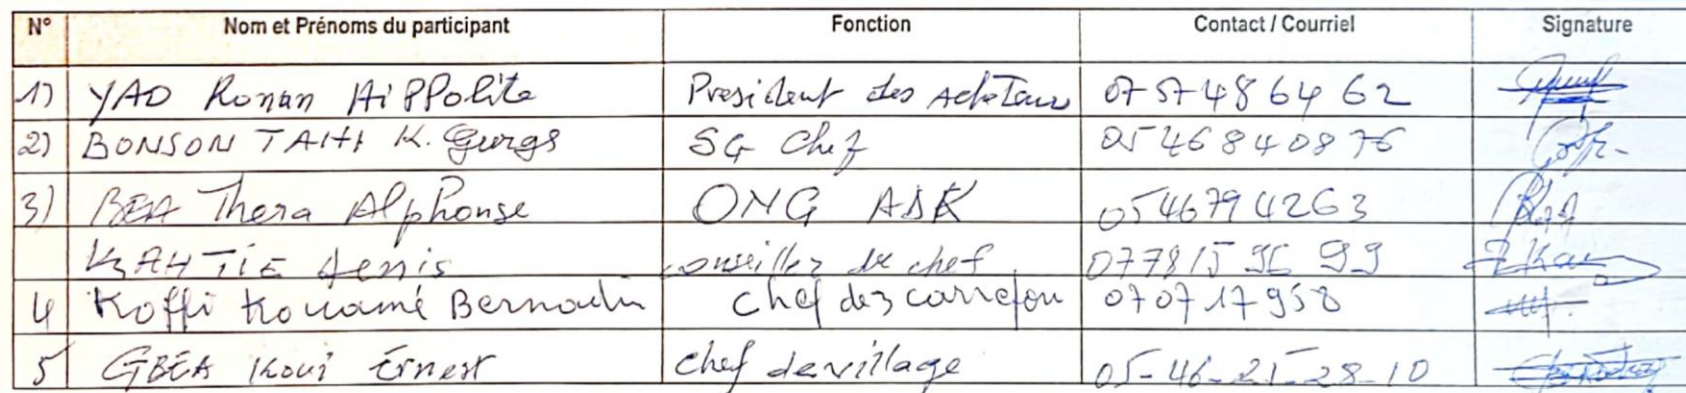 N° Nom et Prénoms du participant Fonction Contact / Courriel Signature
1) YAO Ronan HiPPolite President des AcheTeurs 07 57 48 64 62
2) BONSON TAHI K. Gurgs SG Chef 05 46 84 08 76
3) BEA Thera Alphonse ONG ASK 05 46 79 42 63
KAHTIE Denis conseiller de chef 07 78 15 96 99
4 Koffi Kouamé Bernardin Chef des carrefou 0707 17 958
5 GBEA Koui Ernest chef de village 05-46-21-28-10